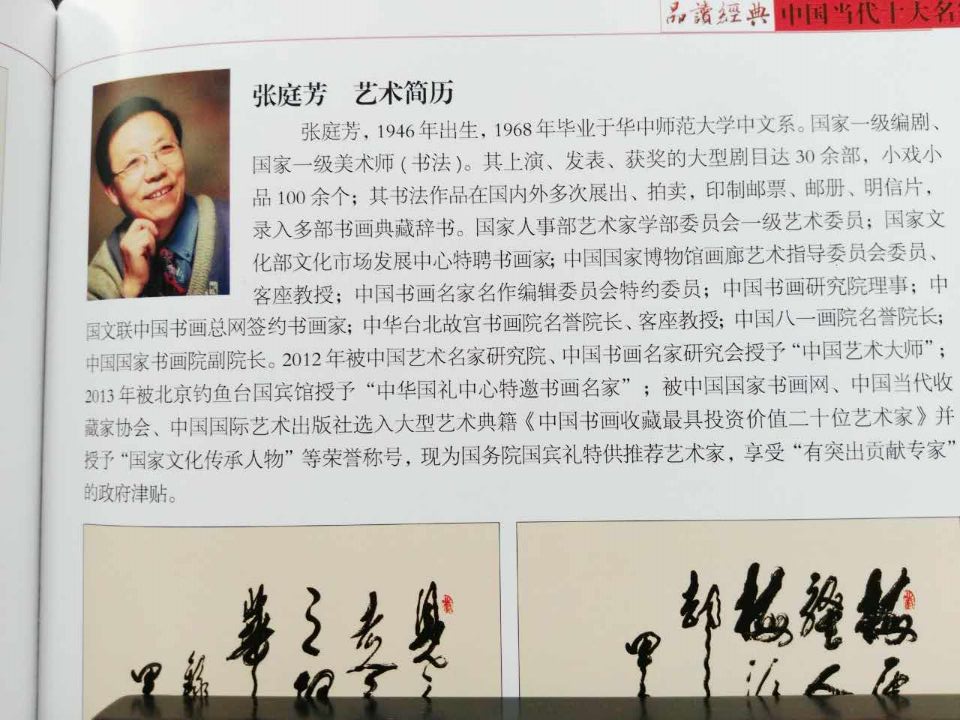 品讀經典 中国当代十大名
张庭芳 艺术简历
张庭芳，1946年出生，1968年毕业于华中师范大学中文系。国家一级编剧、
国家一级美术师(书法)。其上演、发表、获奖的大型剧目达30余部，小戏小
品100余个；其书法作品在国内外多次展出、拍卖，印制邮票、邮册、明信片，
录入多部书画典藏辞书。国家人事部艺术家学部委员会一级艺术委员；国家文
化部文化市场发展中心特聘书画家；中国国家博物馆画廊艺术指导委员会委员、
客座教授；中国书画名家名作编辑委员会特约委员；中国书画研究院理事；中
国文联中国书画总网签约书画家；中华台北故宫书画院名誉院长、客座教授；中国八一画院名誉院长；
中国国家书画院副院长。2012年被中国艺术名家研究院、中国书画名家研究会授予“中国艺术大师”；
2013年被北京钓鱼台国宾馆授予“中华国礼中心特邀书画名家”；被中国国家书画网、中国当代收
藏家协会、中国国际艺术出版社选入大型艺术典籍《中国书画收藏最具投资价值二十位艺术家》并
授予“国家文化传承人物”等荣誉称号，现为国务院国宾礼特供推荐艺术家，享受“有突出贡献专家”
的政府津贴。